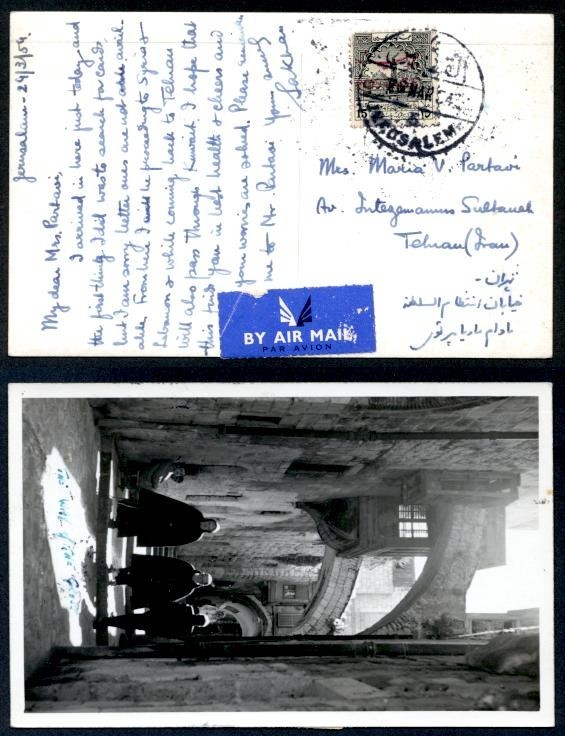 Jerusalem - 24/3/54.
My dear Mrs. Partavi,
I arrived in here just today and
the first thing I did was to search for cards
but I am sorry better ones are not avail-
able. From here I would be proceeding to Syria &
Lebanon & while coming back to Tehran
will also pass through Kuwait. I hope that
this finds you in best health & cheers and
your worries are solved. Please remember
me to Mr. Partavi. Yours
BY AIR MAIL
PAR AVION
15
JERUSALEM
Mrs. Maria V. Partavi
Av. Entezamanus Sultaneh
Tehran (Iran)
تهران -
خیابان انتظام السلطنه
مادام